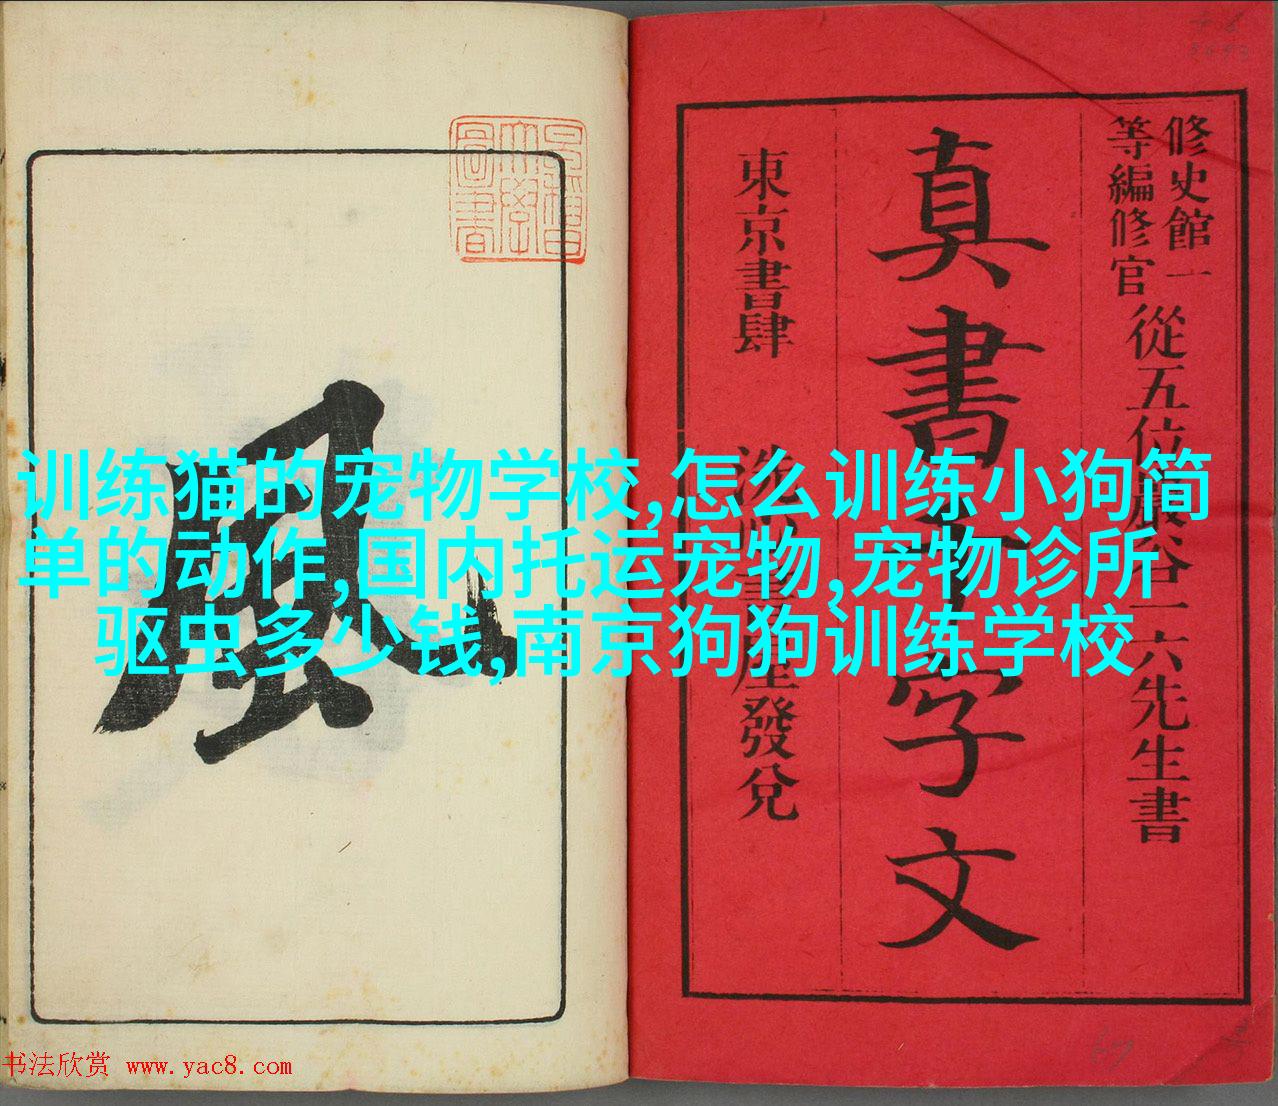 修史館一
等編修官
從五位嚴谷一六先生書
真書千字文
東京書肆
發兌
風
训练猫的宠物学校,怎么训练小狗简
单的动作,国内托运宠物,宠物诊所
驱虫多少钱,南京狗狗训练学校
书法欣赏 www.yac8.com